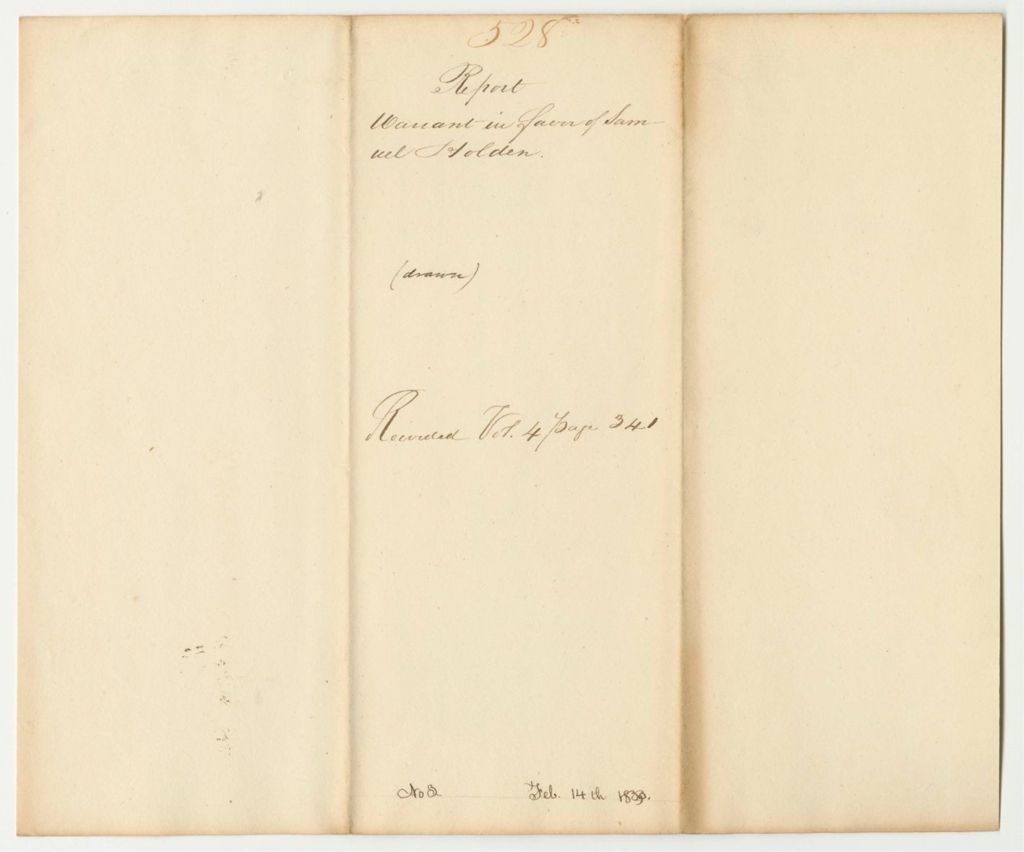 528
Report
Warrant in favor of Sam-
uel Holden.
(drawn)
Recorded Vol. 4 page 341
No 2
Feb. 14th